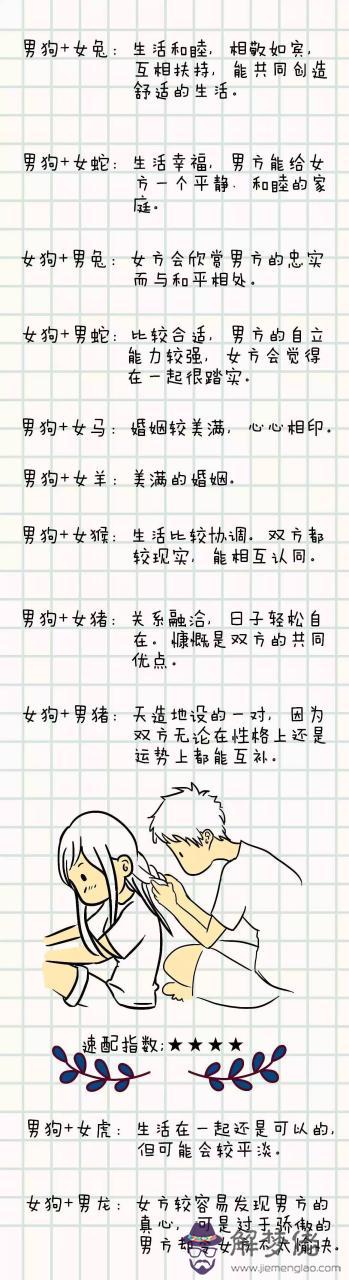 男狗+女兔: 生活和睦, 相敬如宾,
互相扶持, 能共同创造
舒适的生活。
男狗+女蛇: 生活幸福, 男方能给女
方一个平静. 和睦的家
庭。
女狗+男兔: 女方会欣赏男方的忠实
而与和平相处。
女狗+男蛇: 比较合适, 男方的自立
能力较强, 女方会觉得
在一起很踏实。
男狗+女马: 婚姻较美满, 心心相印。
男狗+女羊: 美满的婚姻。
男狗+女猴: 生活比较协调. 双方都
较现实, 能相互认同。
男狗+女猪: 关系融洽, 日子轻松自
在。慷慨是双方的共同
优点。
女狗+男猪: 天造地设的一对, 因为
双方无论在性格上还是
运势上都能互补。
速配指数:★★★★
男狗+女虎: 生活在一起还是可以的,
但可能会较平淡。
女狗+男龙: 女方较容易发现男方的
真心, 可是过于骄傲的
男方却令女方不太愉快。
解梦佬
www.jiemenglao.com